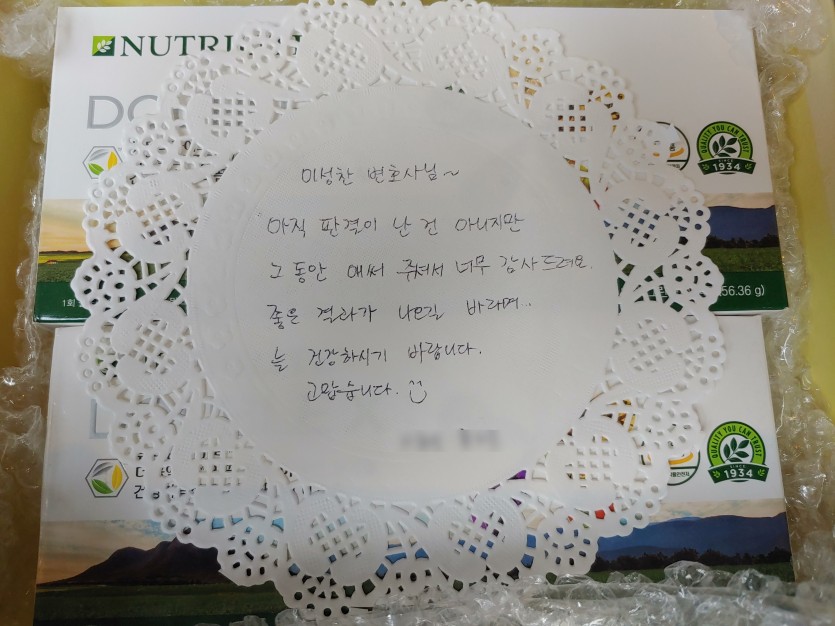 이성찬 변호사님~
아직 판결이 난 건 아니지만
그 동안 애써 주셔서 너무 감사드려요.
좋은 결과가 나오길 바라며...
늘 건강하시기 바랍니다.
고맙습니다.
QUALITY YOU CAN TRUST
SINCE
1934
1회
56.36 g)
QUALITY YOU CAN TRUST
SINCE
1934